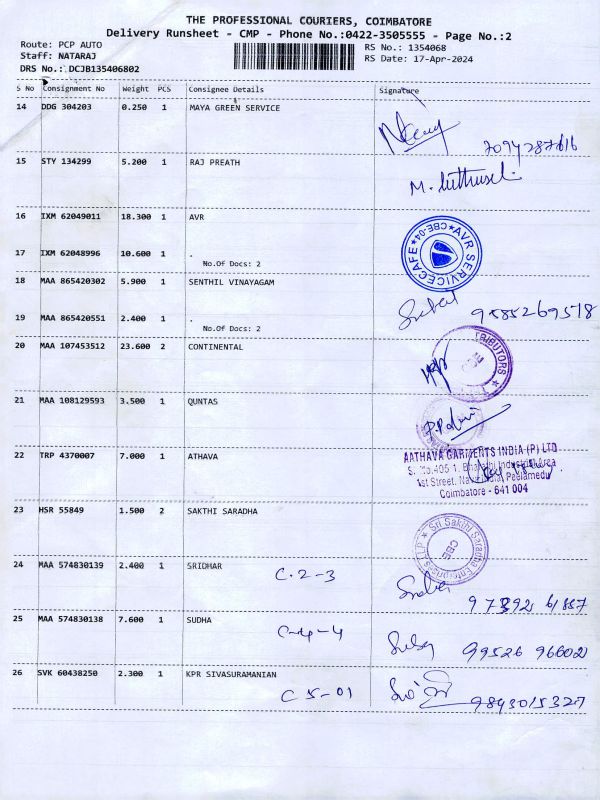 THE PROFESSIONAL COURIERS, COIMBATORE
Delivery Runsheet - CMP - Phone No.:0422-3505555 - Page No.:2
Route: PCP AUTO
Staff: NATARAJ
DRS No.: DCJB135406802
RS No.: 1354068
RS Date: 17-Apr-2024
S No Consignment No Weight PCS Consignee Details Signature
14 DDG 304203 0.250 1 MAYA GREEN SERVICE
15 STY 134299 5.200 1 RAJ PREATH
16 IXM 62049011 18.300 1 AVR
AVR SERVICECAFE ★ CBE-04 ★
17 IXM 62048996 10.600 1 .
No.Of Docs: 2
18 MAA 865420302 5.900 1 SENTHIL VINAYAGAM
9585269518
19 MAA 865420551 2.400 1 .
No.Of Docs: 2
20 MAA 107453512 23.600 2 CONTINENTAL
TRIBUTORS ★
21 MAA 108129593 3.500 1 QUNTAS
22 TRP 4370007 7.000 1 ATHAVA
AATHAVA GARMENTS INDIA (P) LTD
S. No.405 1, Bharathi Industrial Area
1st Street, Nava India, Peelamedu
Coimbatore - 641 004
23 HSR 55849 1.500 2 SAKTHI SARADHA
Sri Sakthi Saradha Enterprises LLP ★ CBE
24 MAA 574830139 2.400 1 SRIDHAR C.2-3
97392 61857
25 MAA 574830138 7.600 1 SUDHA C-4-4
99526 96602
26 SVK 60438250 2.300 1 KPR SIVASURAMANIAN C 5-01
9843015327